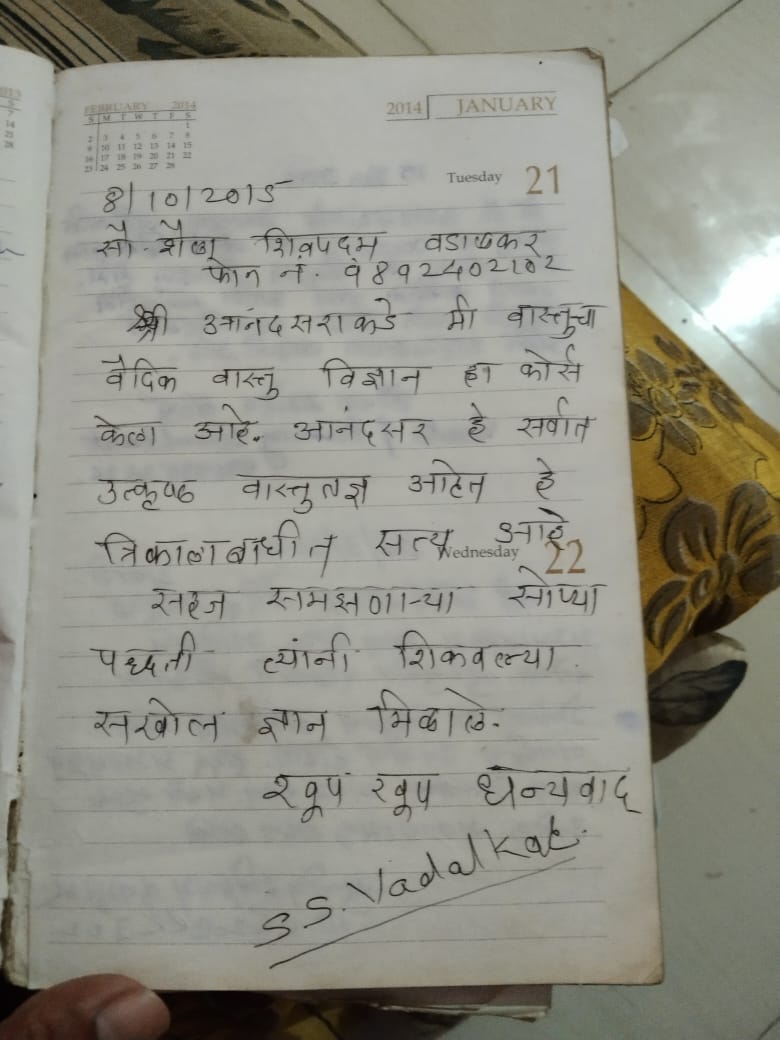 FEBRUARY 2014
S M T W T F S
1
2 3 4 5 6 7 8
9 10 11 12 13 14 15
16 17 18 19 20 21 22
23 24 25 26 27 28
2014 JANUARY
Tuesday 21
8/10/2015
सौ. शैला शिवपदम वडाळकर
फोन नं. ९892402102
श्री आनंदसराकडे मी वास्तुचा
वैदिक वास्तु विज्ञान हा कोर्स
केला आहे. आनंदसर हे सर्वात
उत्कृष्ठ वास्तुतज्ञ आहेत हे
त्रिकालाबाधीत सत्य आहे
Wednesday 22
सहज समझणाऱ्या सोप्या
पध्दती त्यांनी शिकवल्या.
सखोल ज्ञान मिळाले.
खूप खूप धन्यवाद
S S. Vadalkar.